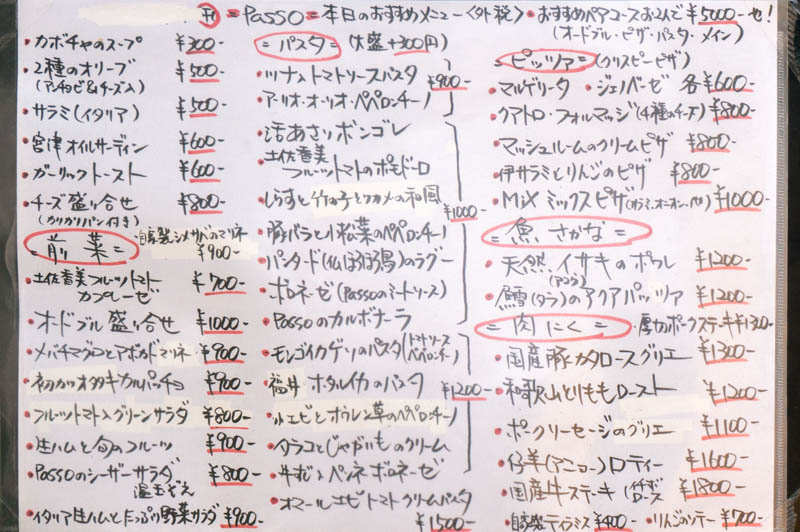 刊 =Passo=本日のおすすめメニュー〈外税〉
・おすすめペアコースお2人で¥5000-也!
(オードブル・ピザ・パスタ・メイン)
・カボチャのスープ ¥300-
・2種のオリーブ ¥500-
(アンチョビ&チーズ入)
・サラミ(イタリア) ¥500-
・宮津オイルサーディン ¥600-
・ガーリックトースト ¥600-
・チーズ盛り合せ ¥800-
(カリカリパン付き)
=前菜=
・自家製シメサバのマリネ ¥900-
・土佐香美フルーツトマト ¥700-
カプレーゼ
・オードブル盛り合せ ¥1000-
・メバチマグロとアボカドマリネ ¥900-
・初カツオタタキカルパッチョ ¥900-
・フルーツトマト入グリーンサラダ ¥800-
・生ハムと旬のフルーツ ¥900-
・Passoのシーザーサラダ ¥800-
温玉ぞえ
・イタリア生ハムとたっぷり野菜サラダ ¥900-
=パスタ= (大盛+300円)
・ツナ入トマトソースパスタ ¥900-
・アーリオ・オーリオ・ペペロンチーノ
・活あさりボンゴレ
・土佐香美
フルーツトマトのポモドーロ
・しらすと竹の子とワカメの和風 ¥1000-
・豚バラと小松菜のペペロンチーノ
・パンタード(仏ほろほろ鶏)のラグー
・ボロネーゼ(Passoのミートソース)
・Passoのカルボナーラ
・モンゴイカゲソのパスタ(トマトソース
ペペロンチーノ)
・福井 ホタルイカのパスタ ¥1200-
・小エビとホウレン草のペペロンチーノ
・タラコとじゃがいものクリーム
・牛すじペンネボロネーゼ
・オマールエビトマトクリームパスタ ¥1500-
=ピッツァ= (クリスピーピザ)
・マルゲリータ ・ジェノベーゼ 各¥600-
・クアトロ・フォルマッジ(4種のチーズ) ¥800-
・マッシュルームのクリームピザ ¥800-
・伊サラミとりんごのピザ ¥800-
・MiXミックスピザ ¥1000-
=魚さかな=
・天然イサキのポワレ ¥1200-
・鱈(タラ)のアクアパッツァ ¥1200-
=肉にく= ・厚切ポークステーキ¥1300-
・国産豚カタロースグリエ ¥1300-
・和歌山とりももロースト ¥1200-
・ポークソーセージのグリエ ¥1100-
・仔羊(アニョー)ロティー ¥1600-
・国産牛ステーキ ¥1800-
・自家製ティラミス ¥400- ・りんごのソテー ¥700-